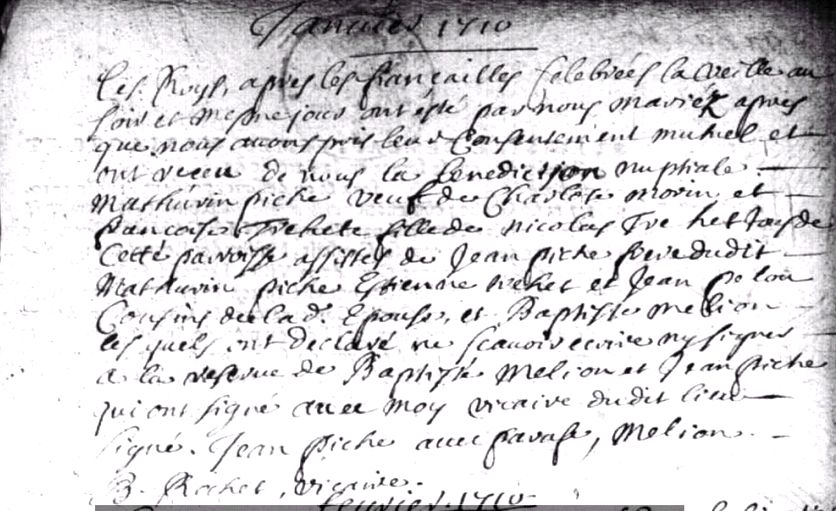 Janvier 1710
les Roys, apres les fiançailles celebrées la veille au
soir et mesme jour ont esté par nous mariéz apres
que nous avons pris leur Consentement mutuel et
ont receu de nous la benediction nuptiale
Mathurin piche veuf de Charlote morin et
francoise Trehete fille de Nicolas Trehet tous de
Cette parroisse assistes de Jean piche frere dudit
Mathurin piche Estienne trehet et Jean pelou
Cousins de lad. Epouse, et Baptiste Melion
les quels ont declaré ne scavoir ecrire ny signer
a la reserve de Baptiste Melion et Jean piche
qui ont signé avec moy vicaire dudit lieu
signé. Jean piche avec , Melion.
B. Rochet, vicaire.
fevrier 1710